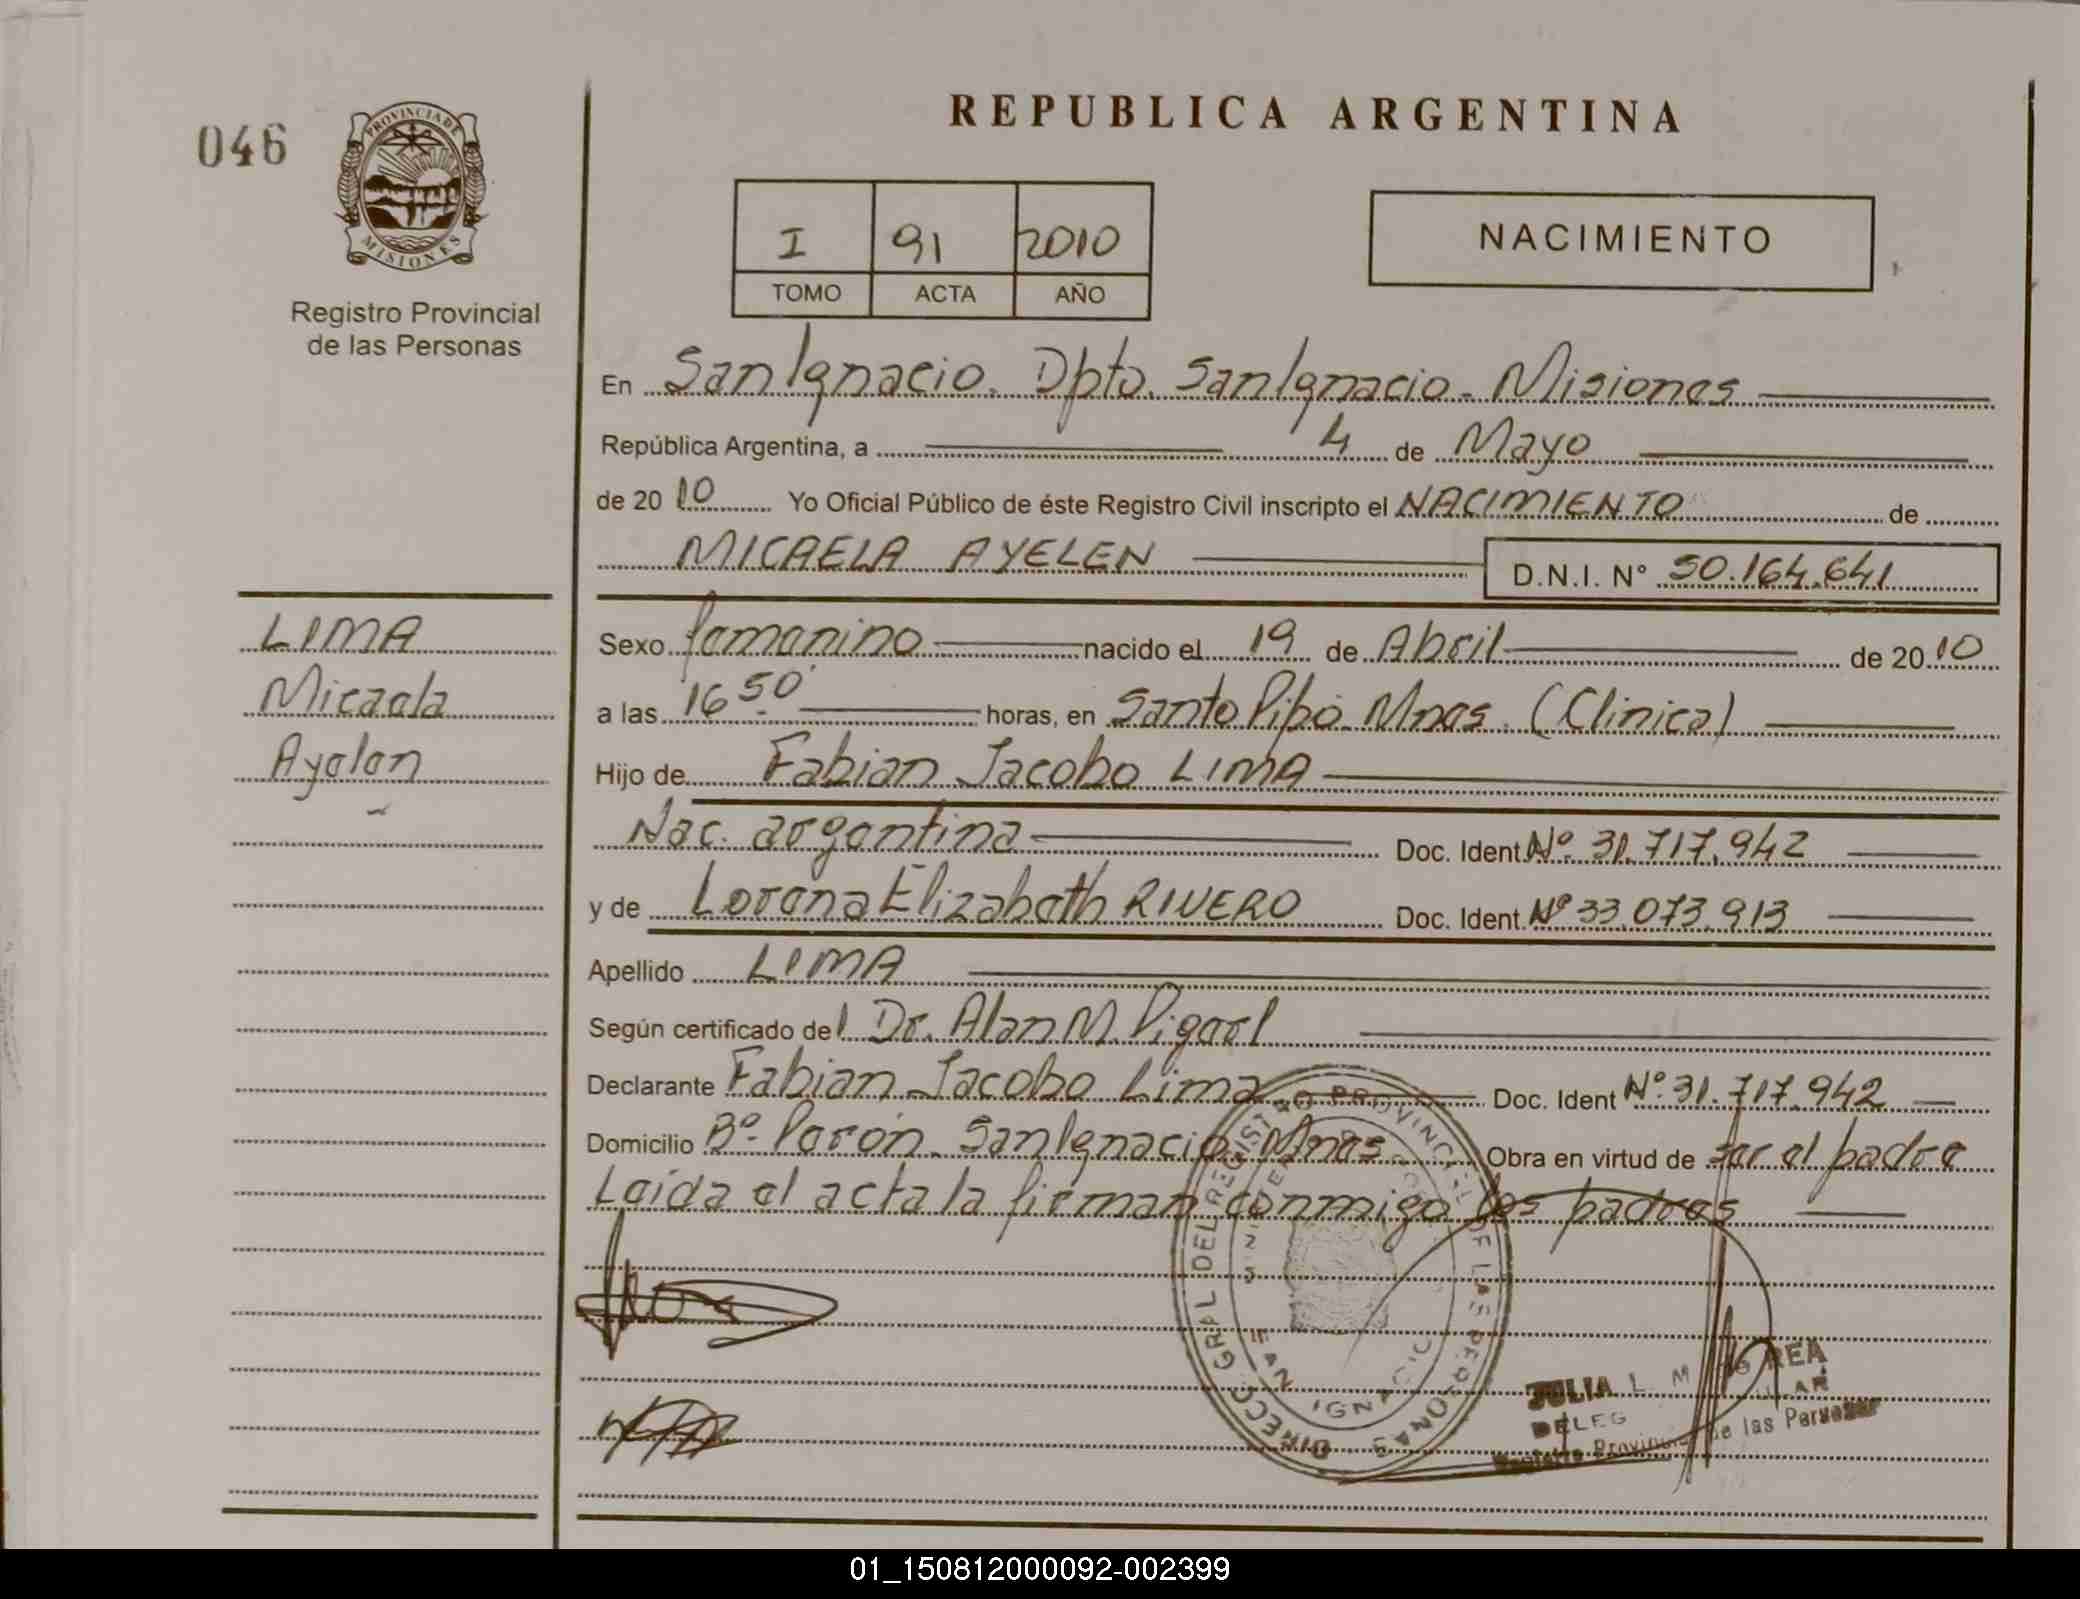 046
PROVINCIA DE
MISIONES
Registro Provincial
de las Personas
REPUBLICA ARGENTINA
I 91 2010
TOMO ACTA AÑO
NACIMIENTO
En San Ignacio. Dpto. San Ignacio - Misiones
República Argentina, a 4 de Mayo
de 2010 Yo Oficial Público de éste Registro Civil inscripto el NACIMIENTO de
MICAELA AYELEN D.N.I. N° 50.164.641
LIMA
Micaela
Ayelen
Sexo femenino nacido el 19 de Abril de 2010
a las 16 50' horas, en Santo Pipó. Mnes. (Clinica)
Hijo de Fabian Jacobo LIMA
Nac. argentina Doc. Ident. Nº 31.717.942
y de Lorena Elizabeth RIVERO Doc. Ident. Nº 33.073.913
Apellido LIMA
Según certificado del Dr. Alan M.
Declarante Fabian Jacobo Lima Doc. Ident Nº 31.717.942
Domicilio Bº Perón. San Ignacio. Mnes. Obra en virtud de ser el padre
Leída el acta la firman conmigo los padres
DIRECC. GRAL DEL REGISTRO PROVINCIAL DE LAS PERSONAS
IGNACIO
JULIA L. M
DELEG
Registro Provincial de las Personas
01_150812000092-002399